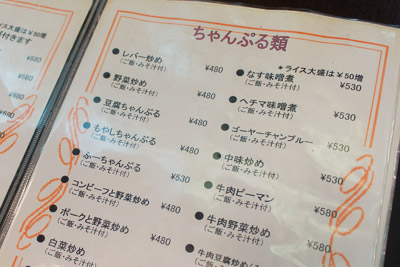 ライス大盛は￥50増
付きます
ちゃんぷる類
＊ライス大盛は￥50増
●レバー炒め ¥480
（ご飯・みそ汁付）
●野菜炒め ¥480
（ご飯・みそ汁付）
●豆腐ちゃんぷる ¥480
（ご飯・みそ汁付）
●もやしちゃんぷる ¥480
（ご飯・みそ汁付）
●ふーちゃんぷる ¥530
（ご飯・みそ汁付）
●コンビーフと野菜炒め ¥480
（ご飯・みそ汁付）
●ポークと野菜炒め ¥480
（ご飯・みそ汁付）
●白菜炒め
●なす味噌煮 ¥530
（ご飯・みそ汁付）
●ヘチマ味噌煮 ¥530
（ご飯・みそ汁付）
●ゴーヤーチャンプルー ¥530
（ご飯・みそ汁付）
●中味炒め ¥530
（ご飯・みそ汁付）
●牛肉ピーマン ¥580
（ご飯・みそ汁付）
●牛肉野菜炒め ¥580
（ご飯・みそ汁付）
●牛肉豆腐炒め
（ご飯・みそ汁付）